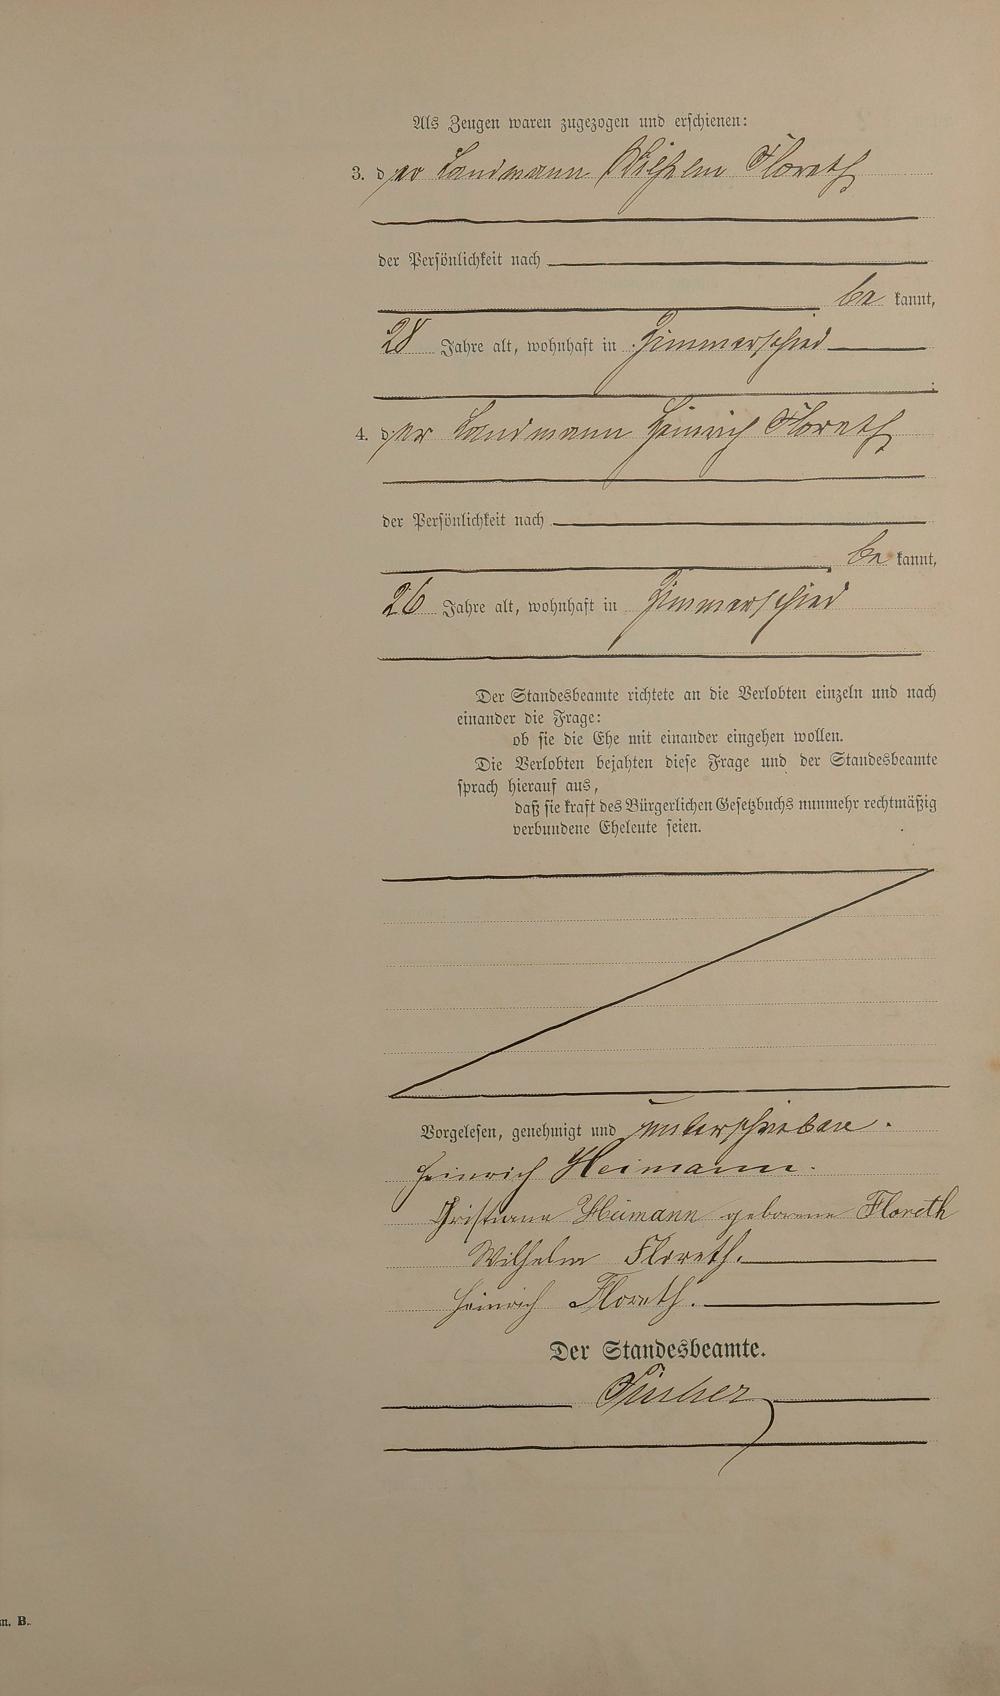 Als Zeugen waren zugezogen und erschienen:
3. der Landmann Wilhelm Floreth
der Persönlichkeit nach
be kannt,
28 Jahre alt, wohnhaft in Zimmerschied
4. der Landmann Heinrich Floreth
der Persönlichkeit nach
be kannt,
26 Jahre alt, wohnhaft in Zimmerschied
Der Standesbeamte richtete an die Verlobten einzeln und nach
einander die Frage:
ob sie die Ehe mit einander eingehen wollen.
Die Verlobten bejahten diese Frage und der Standesbeamte
sprach hierauf aus,
daß sie kraft des Bürgerlichen Gesetzbuchs nunmehr rechtmäßig
verbundene Eheleute seien.
Vorgelesen, genehmigt und unterschrieben.
Heinrich Heimann.
Heimann geborene Floreth
Wilhelm Floreth.
Heinrich Floreth.
Der Standesbeamte.
B.